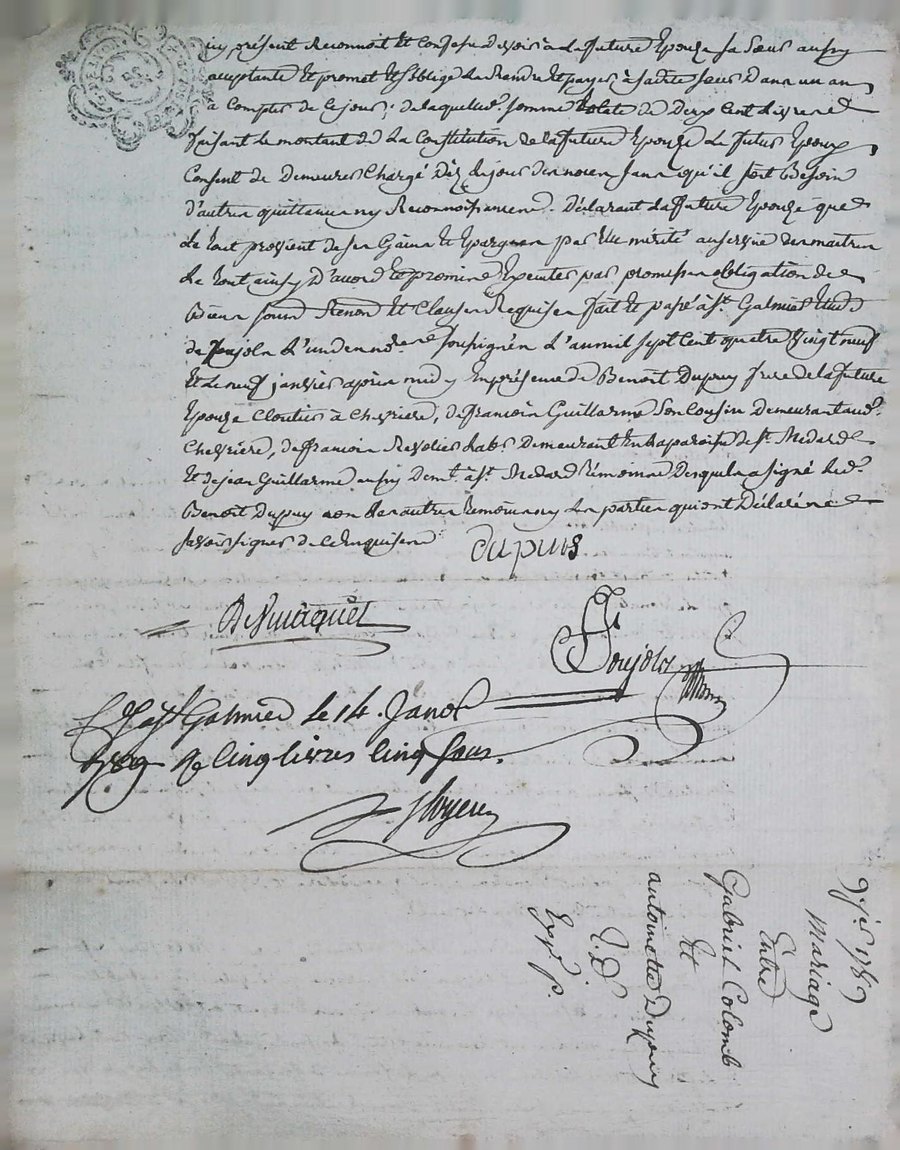 icy présent Reconnoit Et Confesse devoir à la future Epouse sa Sœur aussy
acceptante Et promet Et s'oblige de Rendre Et payer à sadite sœur Dans un an
à Compter de Ce jour, de laquelle somme totale de Deux Cent Livres
faisant le montant de La Constitution de la future Epouze Le futur Epoux
Consent de Demeurer Chargé Dèz le jour des noces sans qu'il soit Besoin
d'autres quittances ny Reconnoissances. Déclarant La future Epouze que
Le tout provient de ses Gains Et Epargnes par Elle mérité au service des maitres
Le tout ainsy D'acord Et promis Executer par promesses obligation de
Biens Renon Et Clauses Requises fait Et passé à St. Galmier Etude
de Joujoln L'un des no.res soussignés L'an mil sept Cent quatre Vingt neuf
Et Le neuf janvier après midy En présence de Benoit Dupuy frere de la future
Epouze Cloutier à Chevriere, de francois Guillarme Son Cousin Demeurant aud.
Chevriére, de francois Demeurant En La paroisse de St. Medard
Et de jean Guillarme aussy Demt. à St. Medard Témoins Desquels a signé Led.
Benoit Dupuy non Les autres Témoins ny Les parties qui ont Déclaré ne
savoir signer de Ce Enquis
dupuis
Joujoln
St Galmier le 14. Janv
1789 R cinq livres cinq sous.
9 js. 1789
Mariage
Entre
Gabriel Colomb
Et
antoinette Dupuy
J. D.
Exp. p.